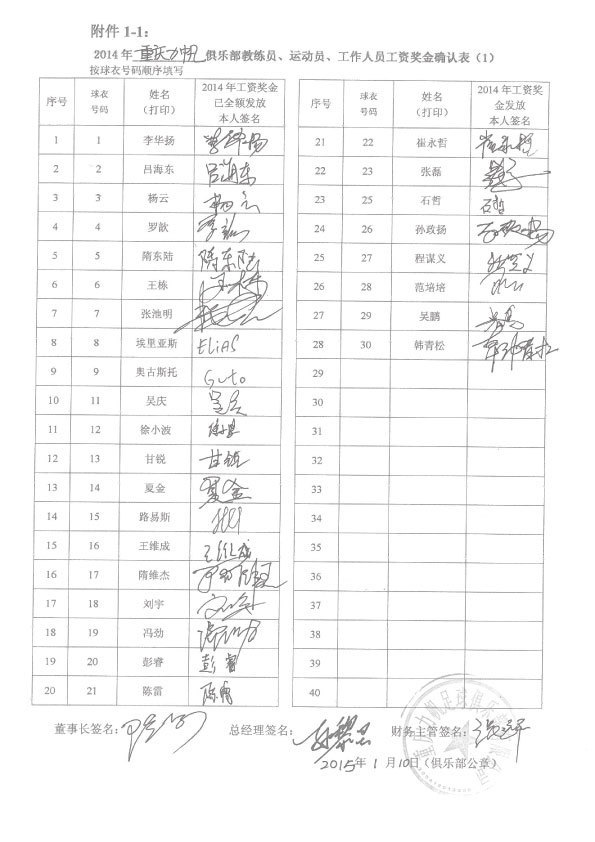 附件 1-1：
2014 年 重庆力帆 俱乐部教练员、运动员、工作人员工资奖金确认表（1）
按球衣号码顺序填写
序号 球衣号码 姓名（打印） 2014 年工资奖金已全额发放本人签名
1 1 李华扬
2 2 吕海东 吕海东
3 3 杨云 杨云
4 4 罗歆
5 5 隋东陆 隋东陆
6 6 王栋 王栋
7 7 张池明
8 8 埃里亚斯 ELiAS
9 9 奥古斯托 Guto
10 11 吴庆
11 12 徐小波
12 13 甘锐 甘锐
13 14 夏金 夏金
14 15 路易斯
15 16 王维成 王维成
16 17 隋维杰
17 18 刘宇
18 19 冯劲
19 20 彭睿 彭睿
20 21 陈雷 陈雷
序号 球衣号码 姓名（打印） 2014 年工资奖金发放本人签名
21 22 崔永哲 崔永哲
22 23 张磊
23 25 石哲 石哲
24 26 孙政扬
25 27 程谋义
26 28 范培培
27 29 吴鹏
28 30 韩青松
29
30
31
32
33
34
35
36
37
38
39
40
董事长签名： 总经理签名： 财务主管签名：
2015年 1 月 10日（俱乐部公章）